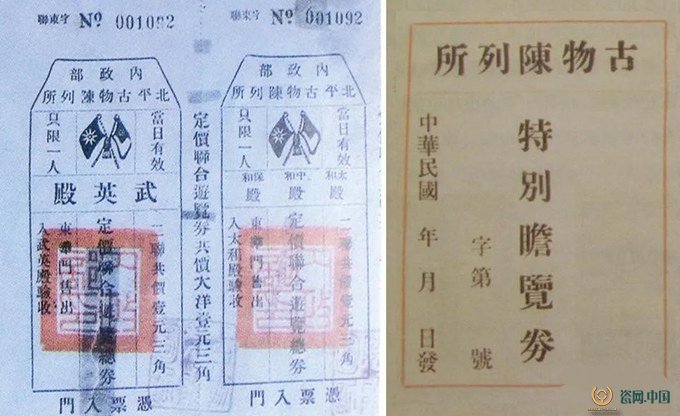 聯東字 № 001092
內政部
北平古物陳列所
當日有效
只限一人
武英殿
二聯共價壹元三角
定價聯合遊覽總券
東華門售出
入武英殿驗收
憑票入門
定價聯合遊覽券共價大洋壹元三角
聯東字 № 001092
內政部
北平古物陳列所
當日有效
只限一人
太和殿
中和殿
保和殿
二聯共價壹元三角
定價聯合遊覽總券
東華門售出
入太和殿驗收
憑票入門
古物陳列所
特別瞻覽券
字第 號
中華民國 年 月 日發
瓷网.中国